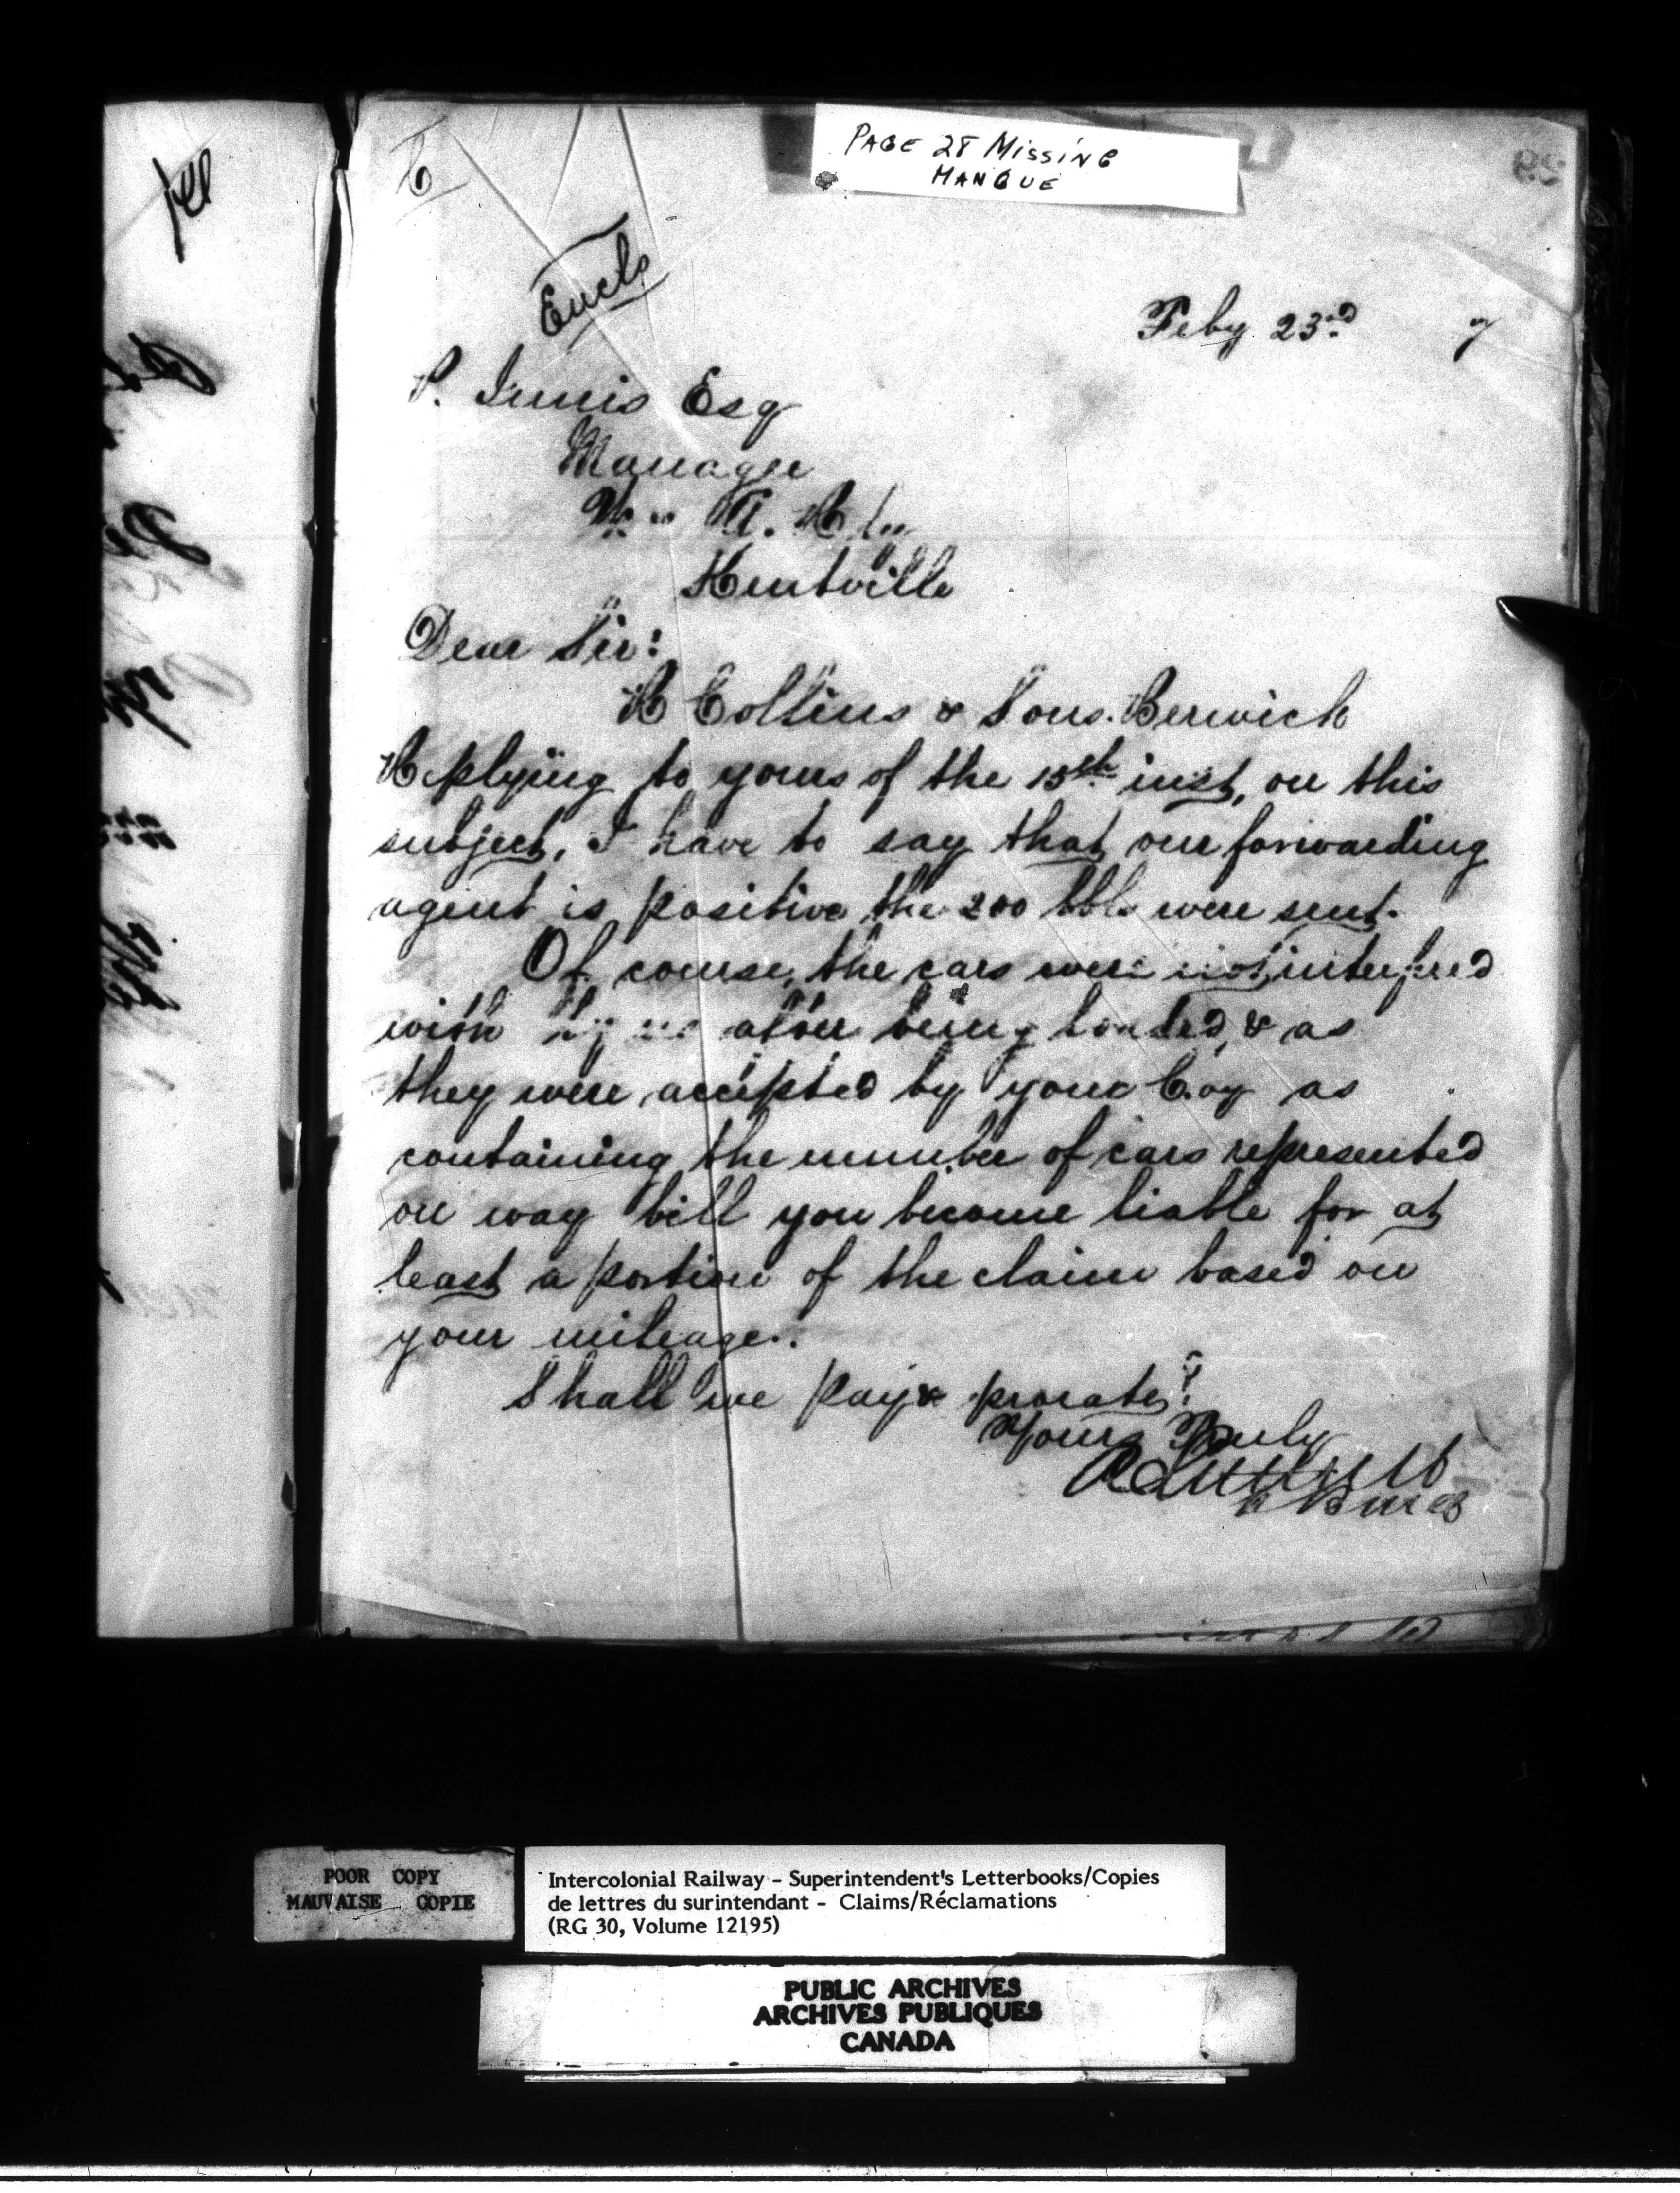 PAGE 28 MISSING
MANQUE
Encls
Feby 23rd 7
P. Innis Esq
Manager
W. & A. Rly
Kentville
Dear Sir:
R Collins & Sons. Berwick
Replying to yours of the 15th inst, on this
subject, I have to say that our forwarding
agent is positive the 200 bbls were sent.
Of course, the cars were not interfered
with by us after being loaded, & as
they were accepted by your Coy as
containing the number of cars represented
on way bill you become liable for at
least a portion of the claim based on
your mileage.
Shall we pay & prorate?
Yours Truly
POOR COPY
MAUVAISE COPIE
Intercolonial Railway - Superintendent's Letterbooks/Copies
de lettres du surintendant - Claims/Réclamations
(RG 30, Volume 12195)
PUBLIC ARCHIVES
ARCHIVES PUBLIQUES
CANADA